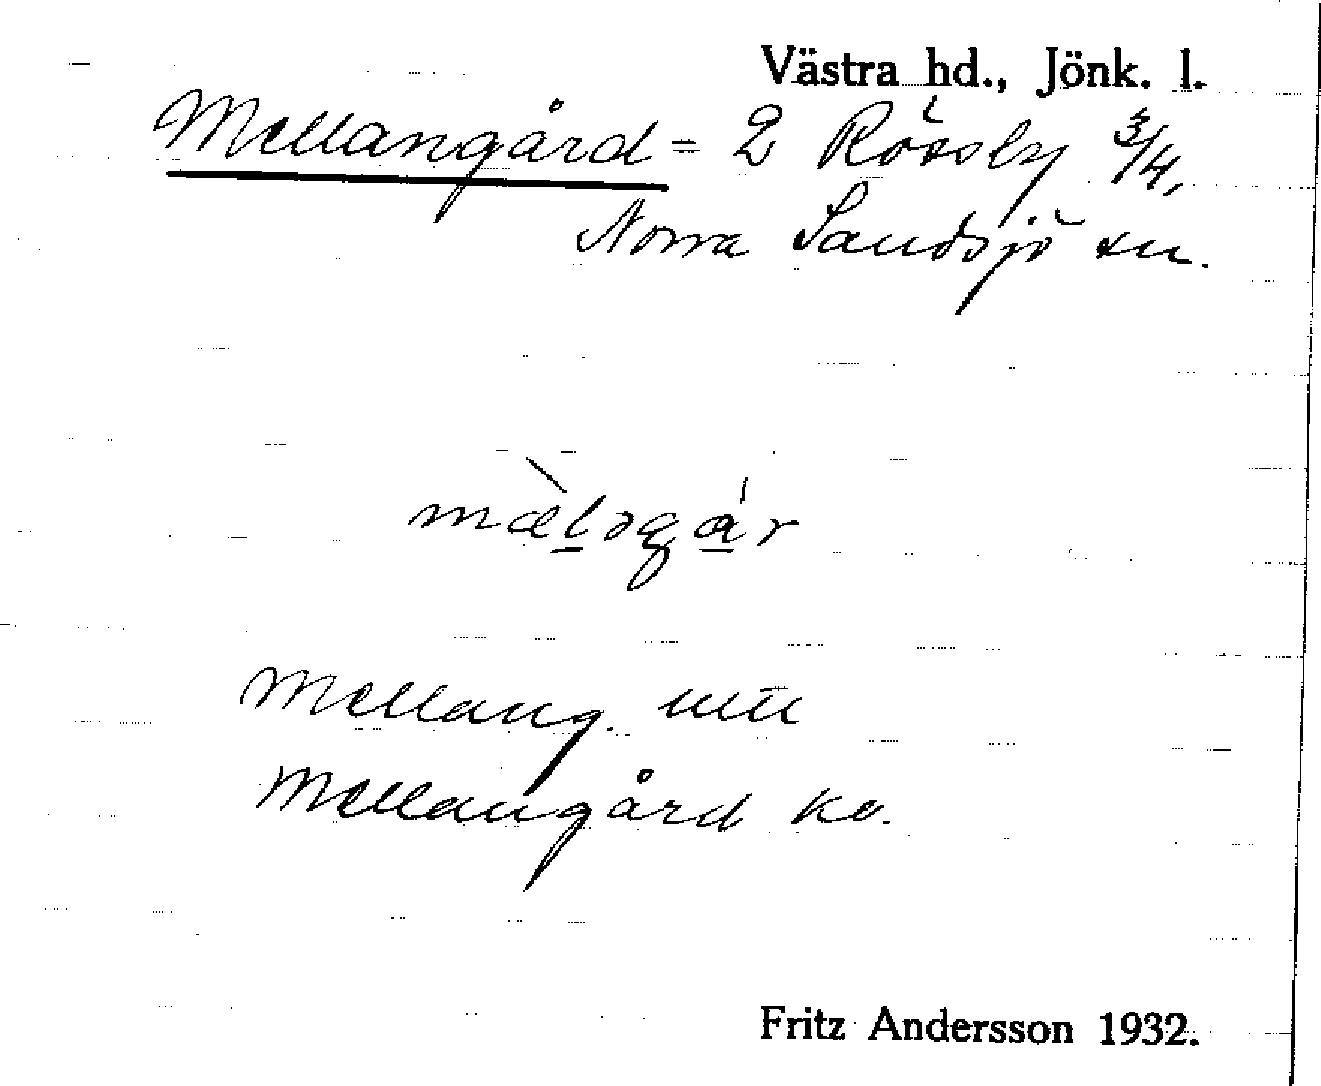 Västra hd., Jönk. l.
Mellangård = 2 Rössly 3/4,
Norra Sandsjö sn.
mæ̀ləgár
Mellang. utu
Mellangård ko.
Fritz Andersson 1932.